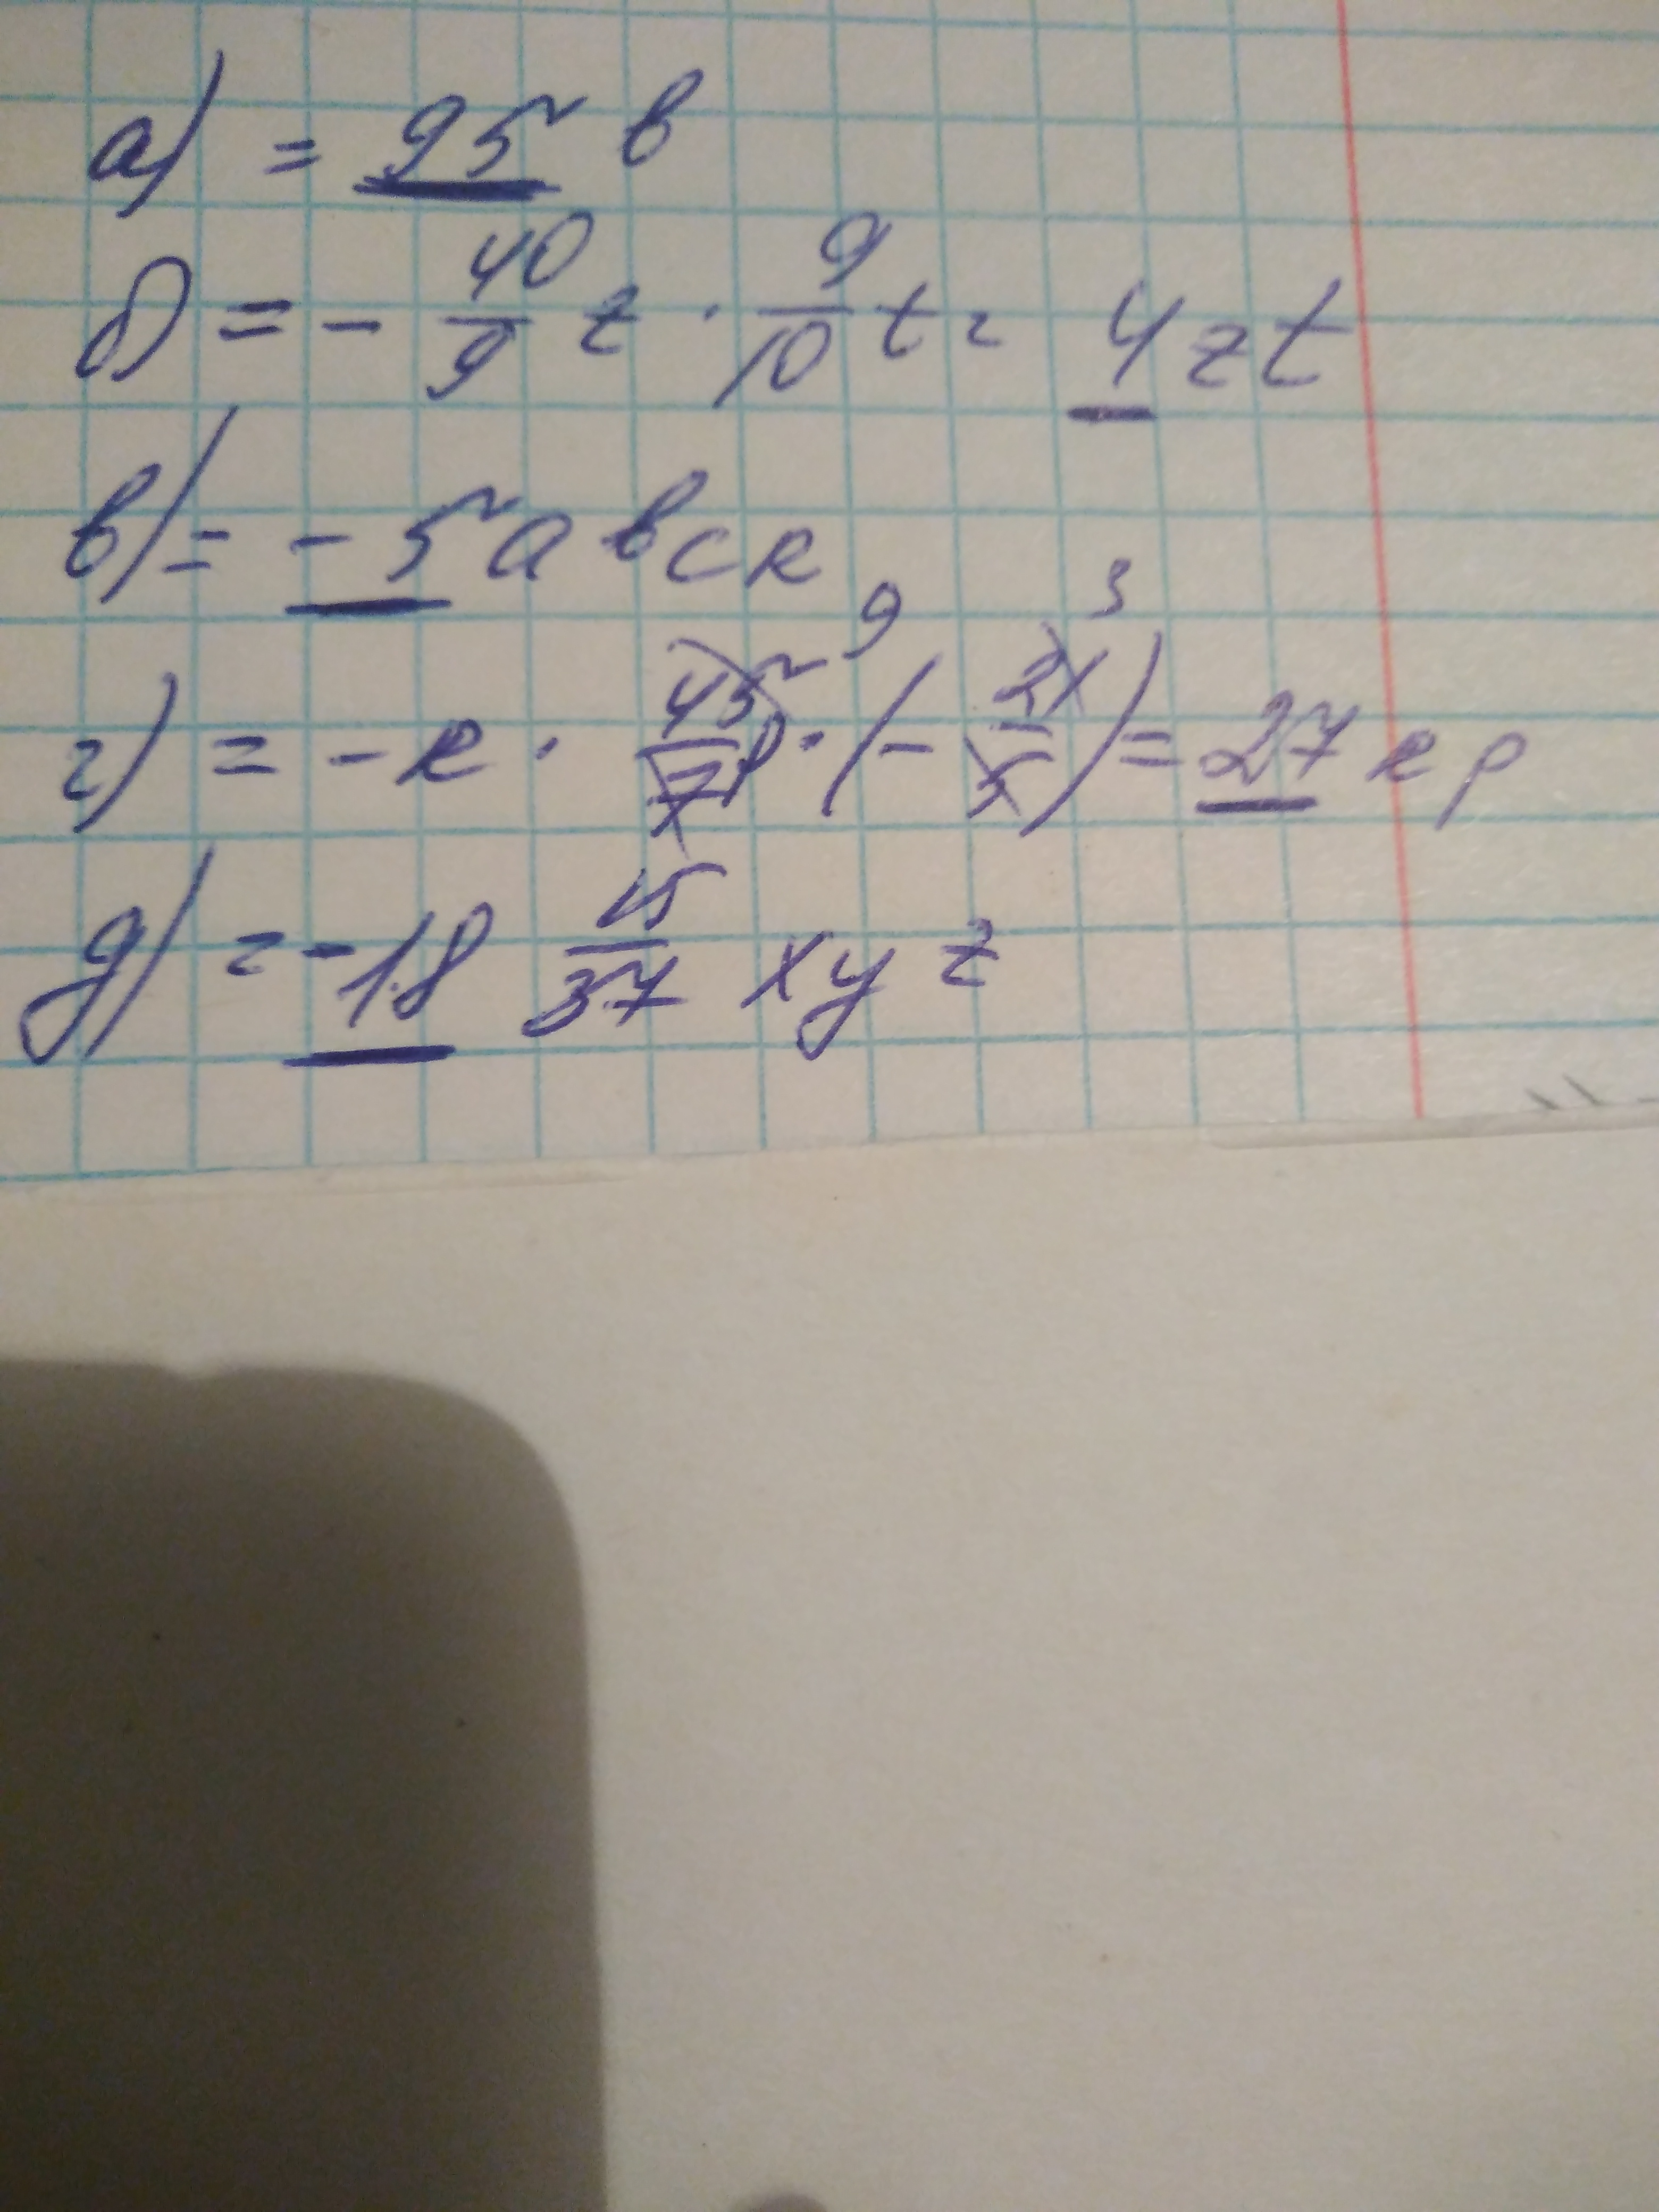 а) = 95 b
б) = - 40/9 z · 9/10 t = 4 zt
в) = - 5 a b c k
г) = - k · 45/7 p · (- 21/5) = 27 k p 9 3
д) = - 18 15/37 x y z